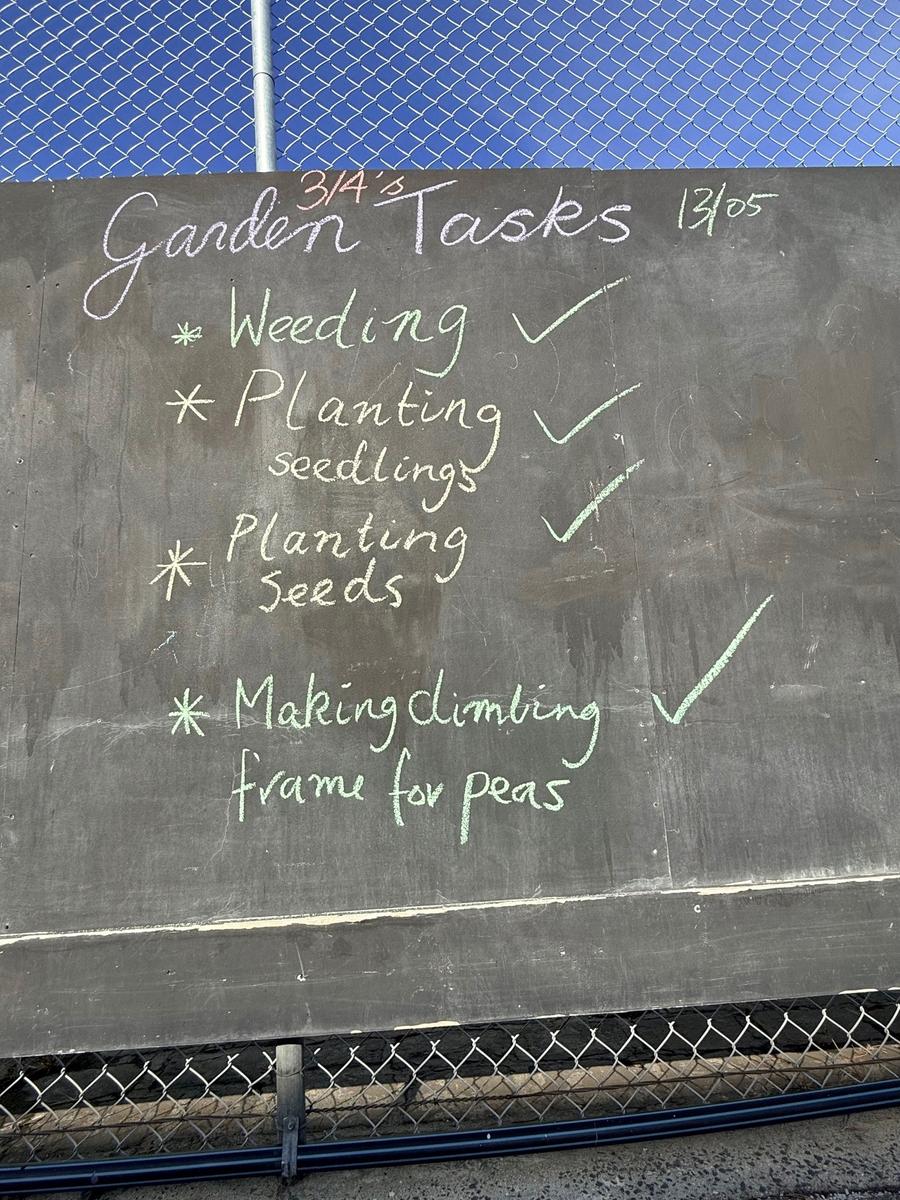 3/4's
Garden Tasks 13/05
* Weeding ✓
* Planting ✓
seedlings
* Planting ✓
Seeds
* Making climbing ✓
frame for peas